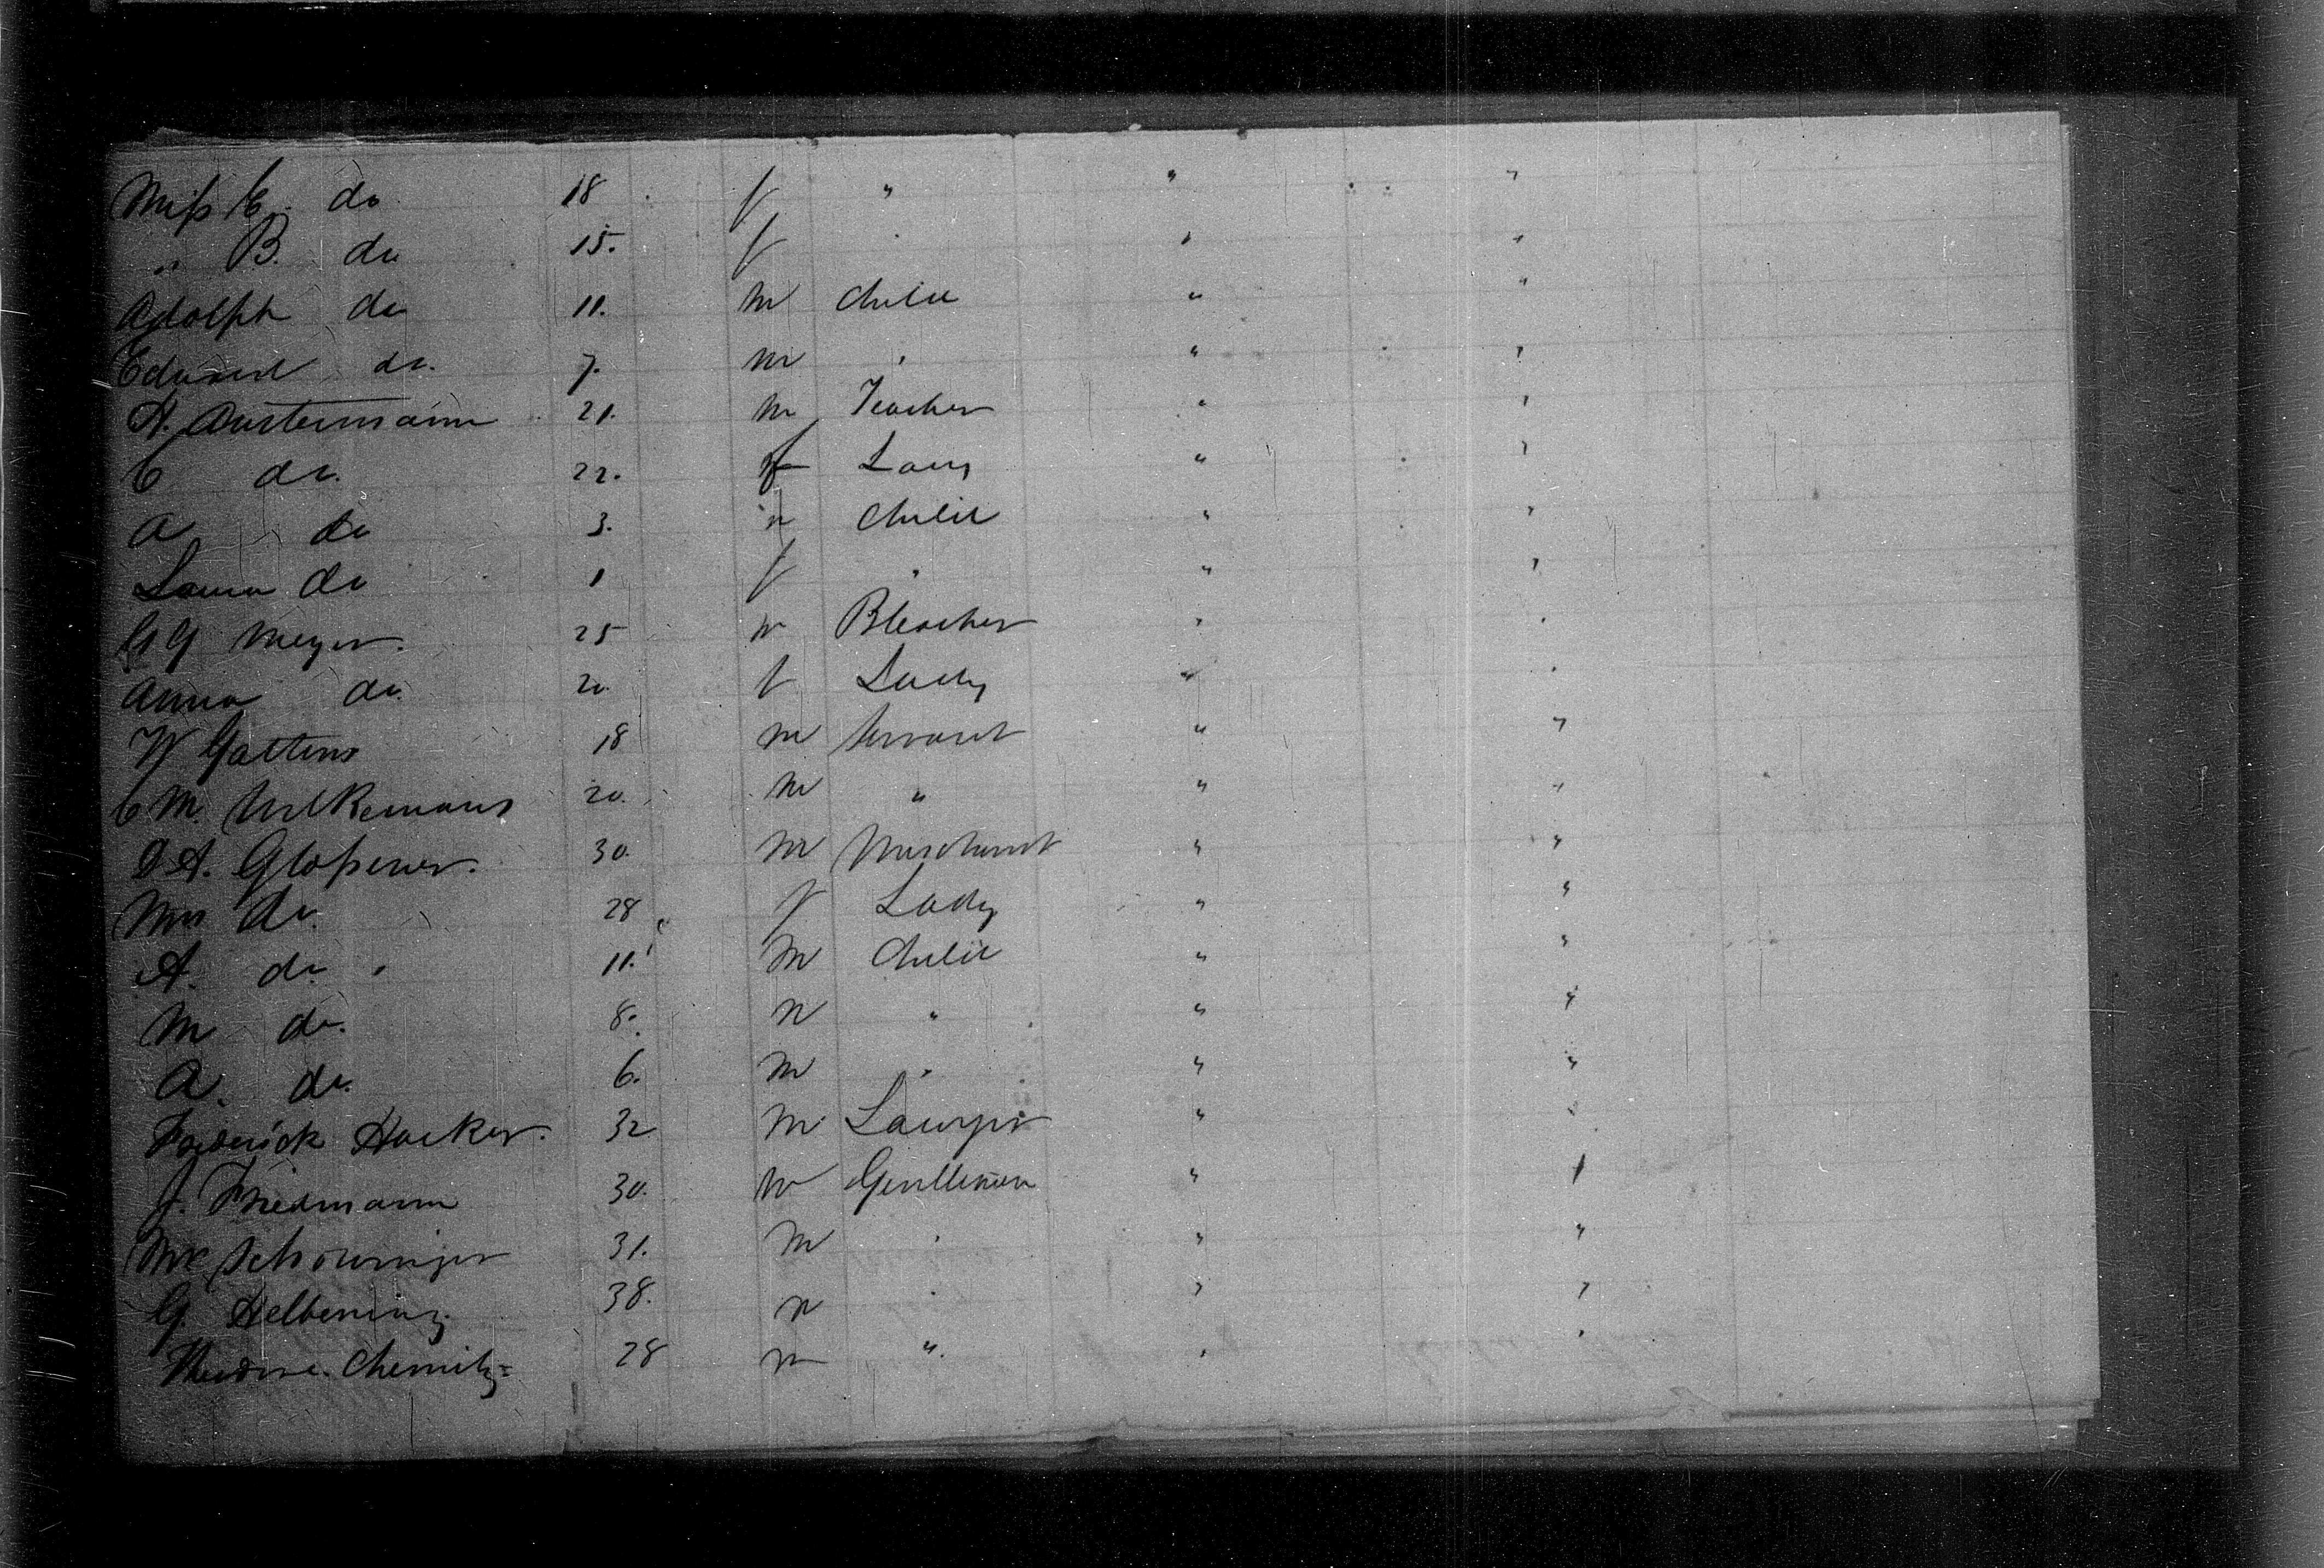 Miss E. do 18 f " " "
" B. do 15. f " " "
Adolph do 11. m Child " "
Edward do. 7. m " " "
A. Austermann 21. m Teacher " "
C do. 22. f Lady " "
A do 3. m Child " "
Laura do 1 f " " "
G G Meyer. 25 m Bleacher " "
Anna do. 20. f Lady " "
W Gattens 18 m Servant " "
C M. 20. m " " "
A. Glossener. 30. m Merchant " "
Mrs do. 28 f Lady " "
A. do. 11. m Child " "
M do. 8. m " " "
A. do. 6. m " " "
Frederick Hacker. 32 m Lawyer " "
J. Friedmann 30. m Gentleman " "
Mr 31. m " " "
G. Helbening. 38. m " " "
Theodore Chemitz= 28 m " " "